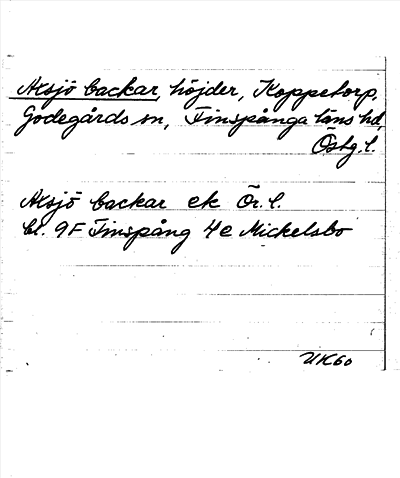 Aksjö backar, höjder, Koppetorp,
Godegårds sn, Finspånga läns hd,
Östg. l.
Aksjö backar ek Ör. l.
bl. 9F Finspång 4e Mickelsbo
UK60